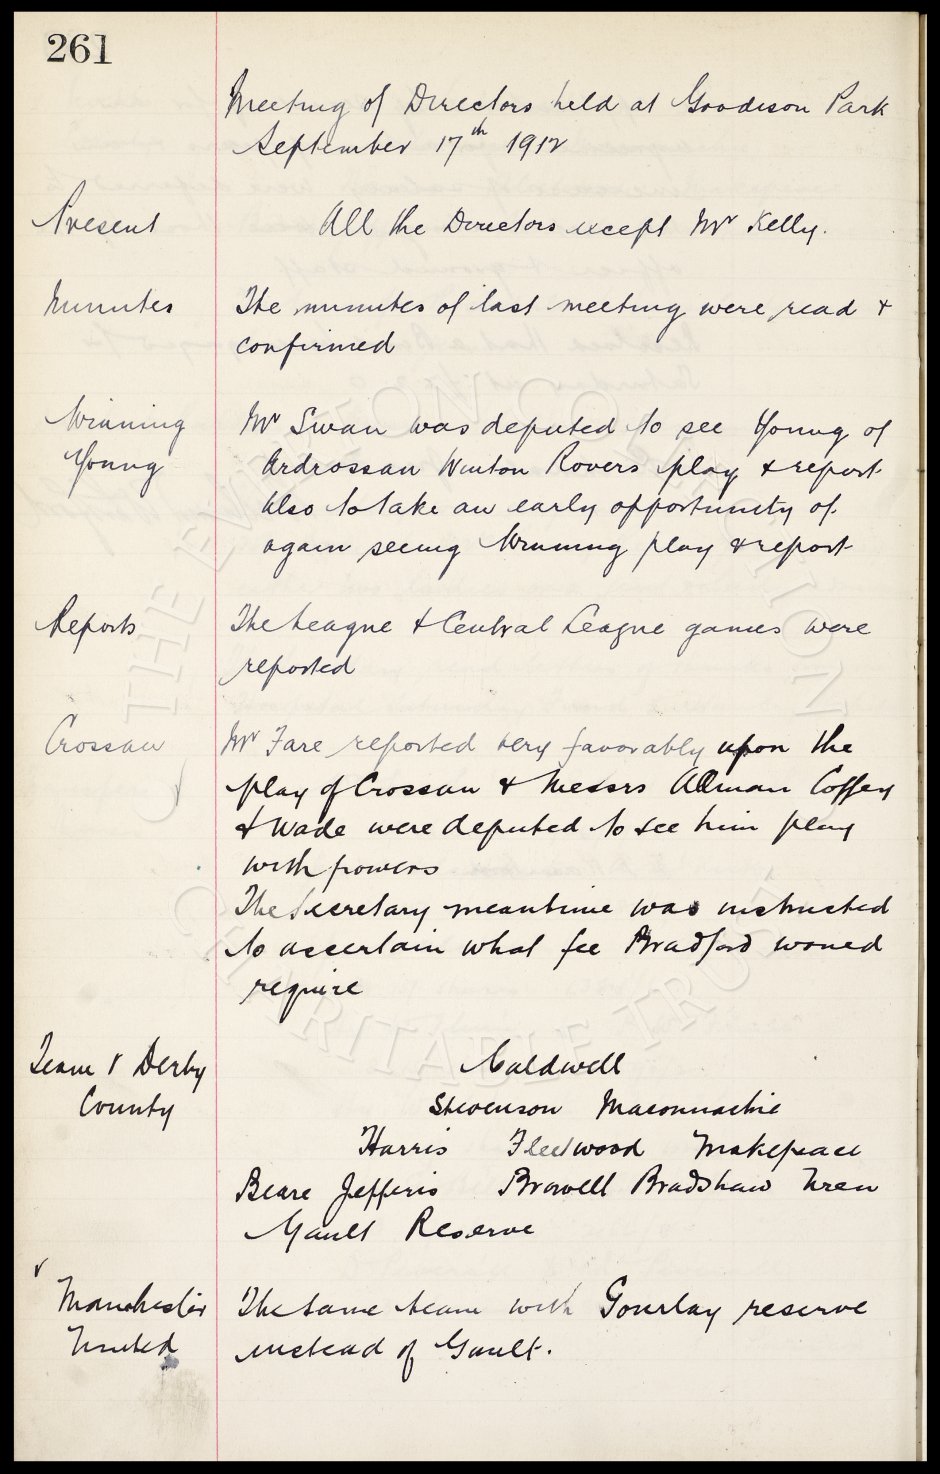 261
Meeting of Directors held at Goodison Park
September 17th 1912
Present All the Directors except Mr Kelly.
Minutes The minutes of last meeting were read &
confirmed
Winning Mr Swan was deputed to see Young of
Young Ardrossan Winton Rovers play & report
also to take an early opportunity of
again seeing Winning play & report
Reports The League & Central League games were
reported
Crossan Mr Fare reported very favorably upon the
play of Crossan & Messrs Allman Coffey
& Wade were deputed to see him play
with powers
The Secretary meantime was instructed
to ascertain what fee Bradford would
require
Team v Derby Caldwell
County Stevenson Maconnachie
Harris Fleetwood Makepeace
Beare Jefferis Browell Bradshaw Uren
Gault Reserve
v
Manchester The same team with Gourlay reserve
United instead of Gault.